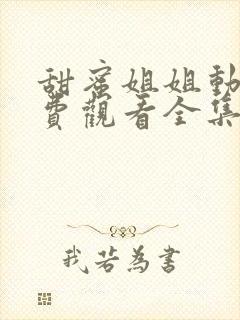 甜蜜姐姐動
費觀看全集
我若為書